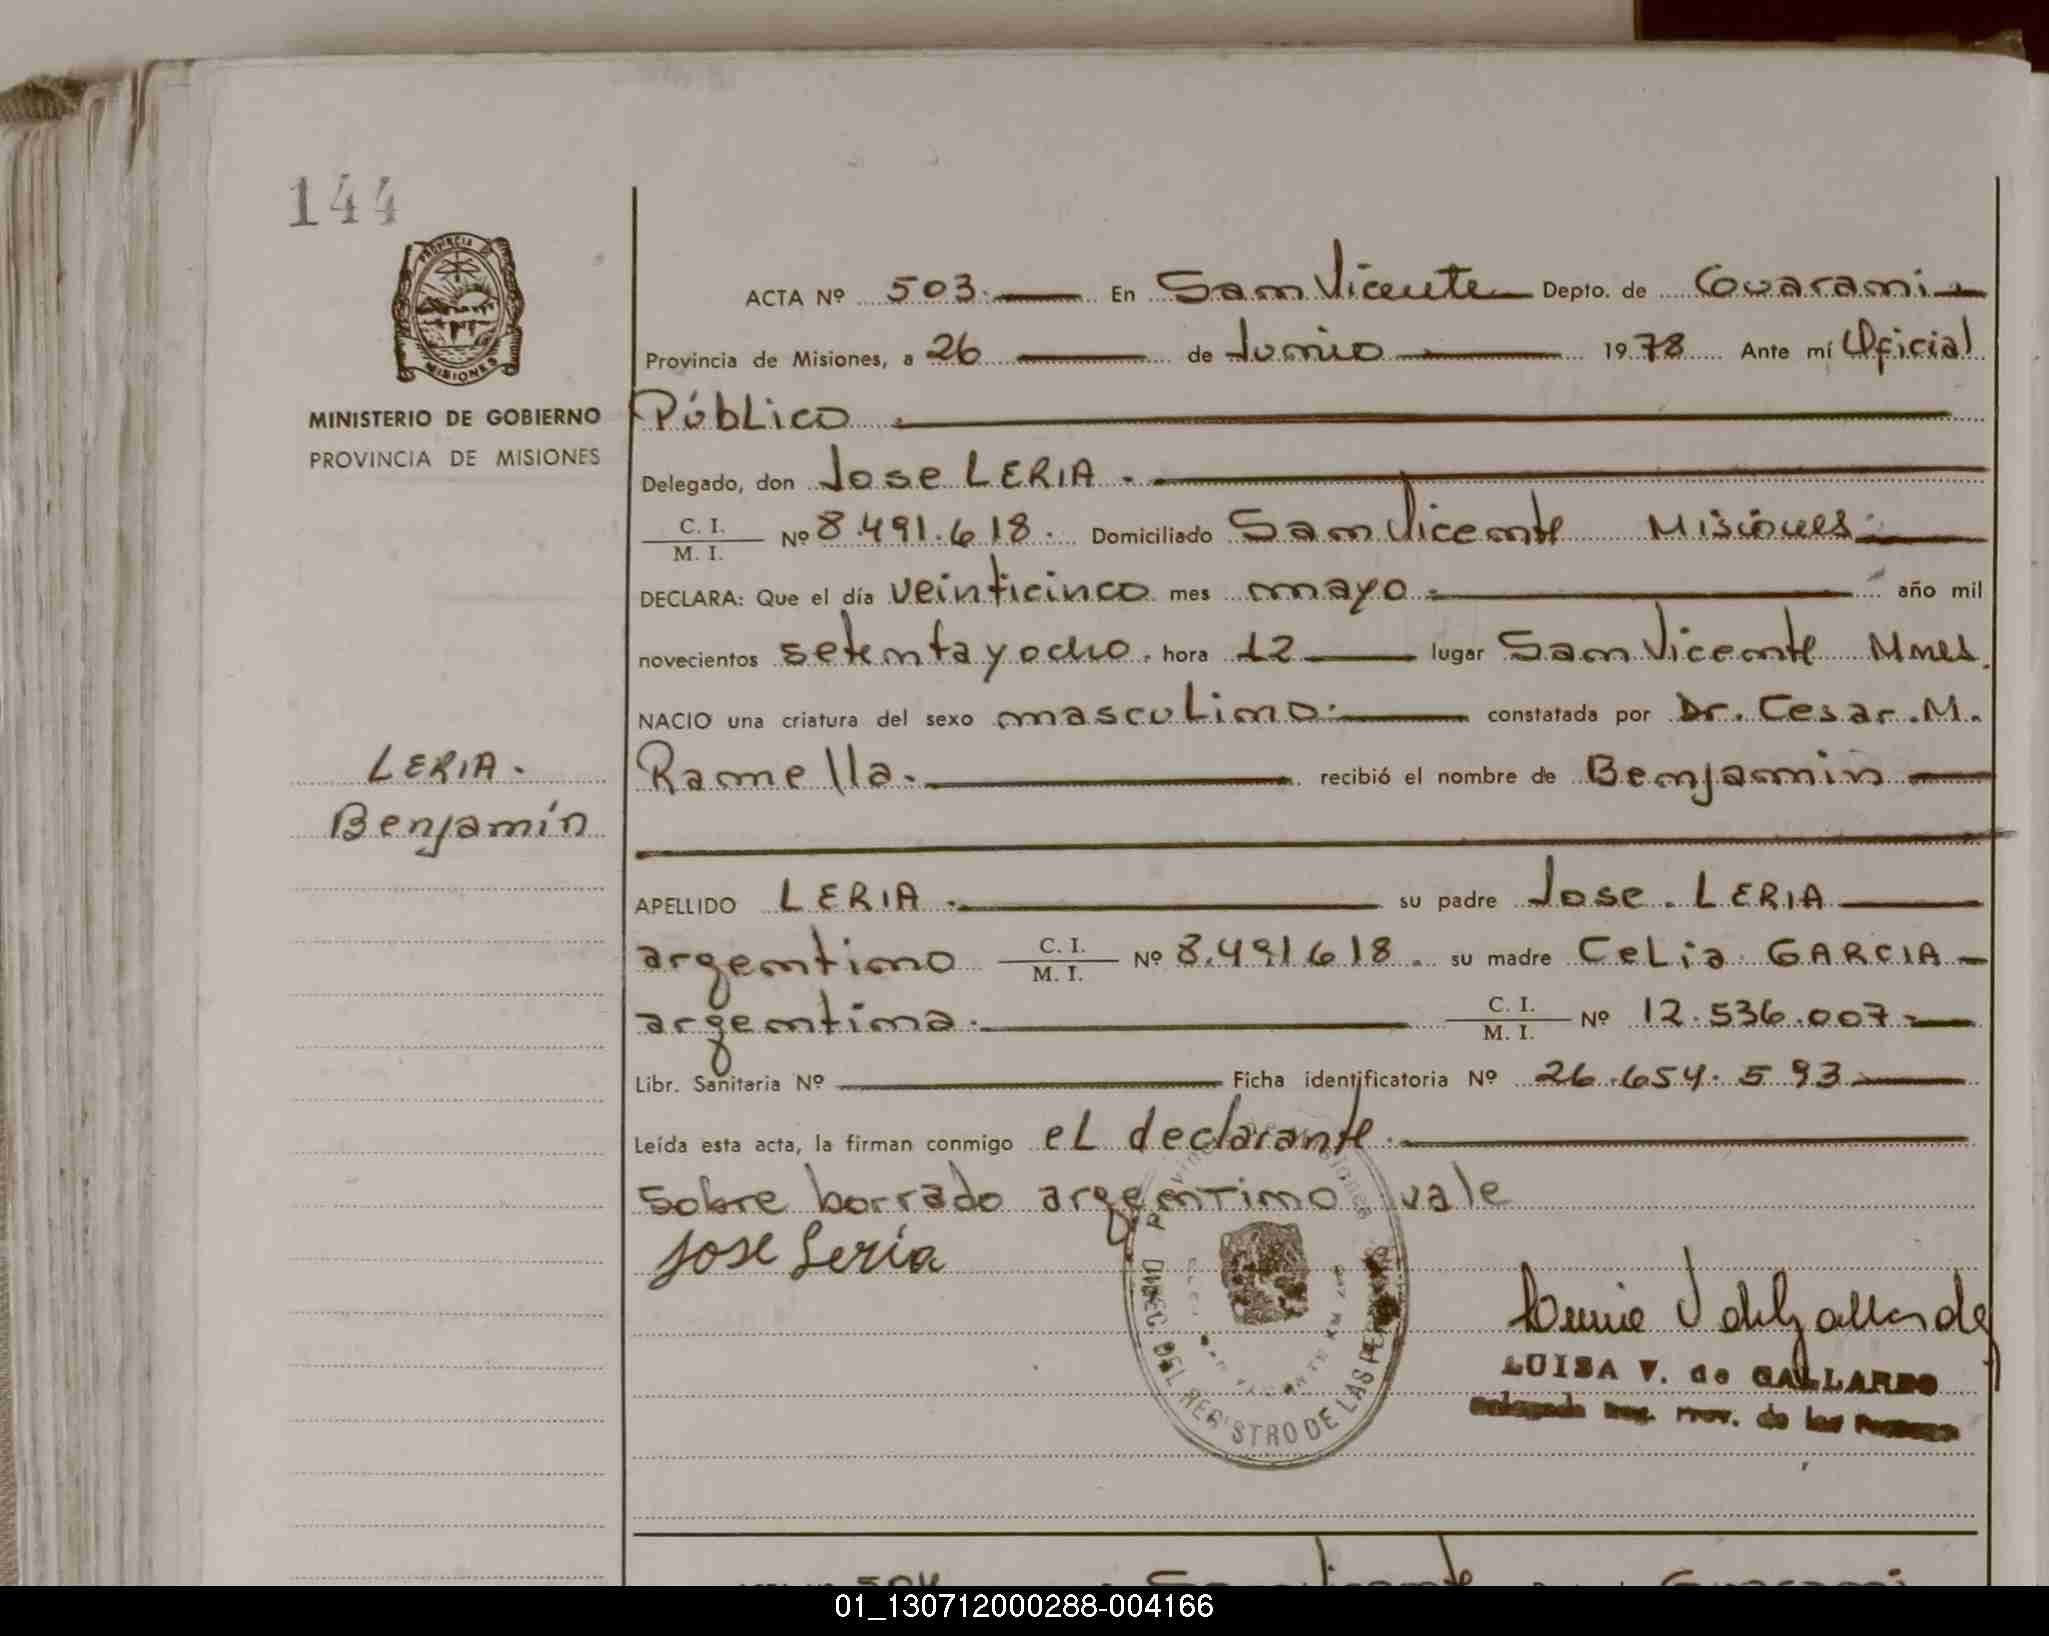 144
PROVINCIA DE
MISIONES
MINISTERIO DE GOBIERNO
PROVINCIA DE MISIONES
ACTA Nº 503. En San Vicente Depto. de Guarani
Provincia de Misiones, a 26 de Junio 1978 Ante mí Oficial
Público
Delegado, don Jose LERIA.
C. I.
M. I. Nº 8.491.618. Domiciliado San Vicente Misiones
DECLARA: Que el día veinticinco mes mayo año mil
novecientos setenta y ocho. hora 12 lugar San Vicente Mnes.
NACIO una criatura del sexo masculino. constatada por Dr. Cesar. M.
Ramella. recibió el nombre de Benjamin
LERIA.
Benjamín
APELLIDO LERIA. su padre Jose. LERIA
argentino C. I.
M. I. Nº 8.491618. su madre Celia GARCIA
argentina. C. I.
M. I. Nº 12.536.007
Libr. Sanitaria Nº Ficha identificatoria Nº 26.654.593
Leída esta acta, la firman conmigo el declarante.
sobre borrado argentino vale
Jose Leria
DIREC. DEL REGISTRO DE LAS PERSONAS
LUISA V. de GALLARDO
Delegada Reg. Prov. de las Personas
01_130712000288-004166